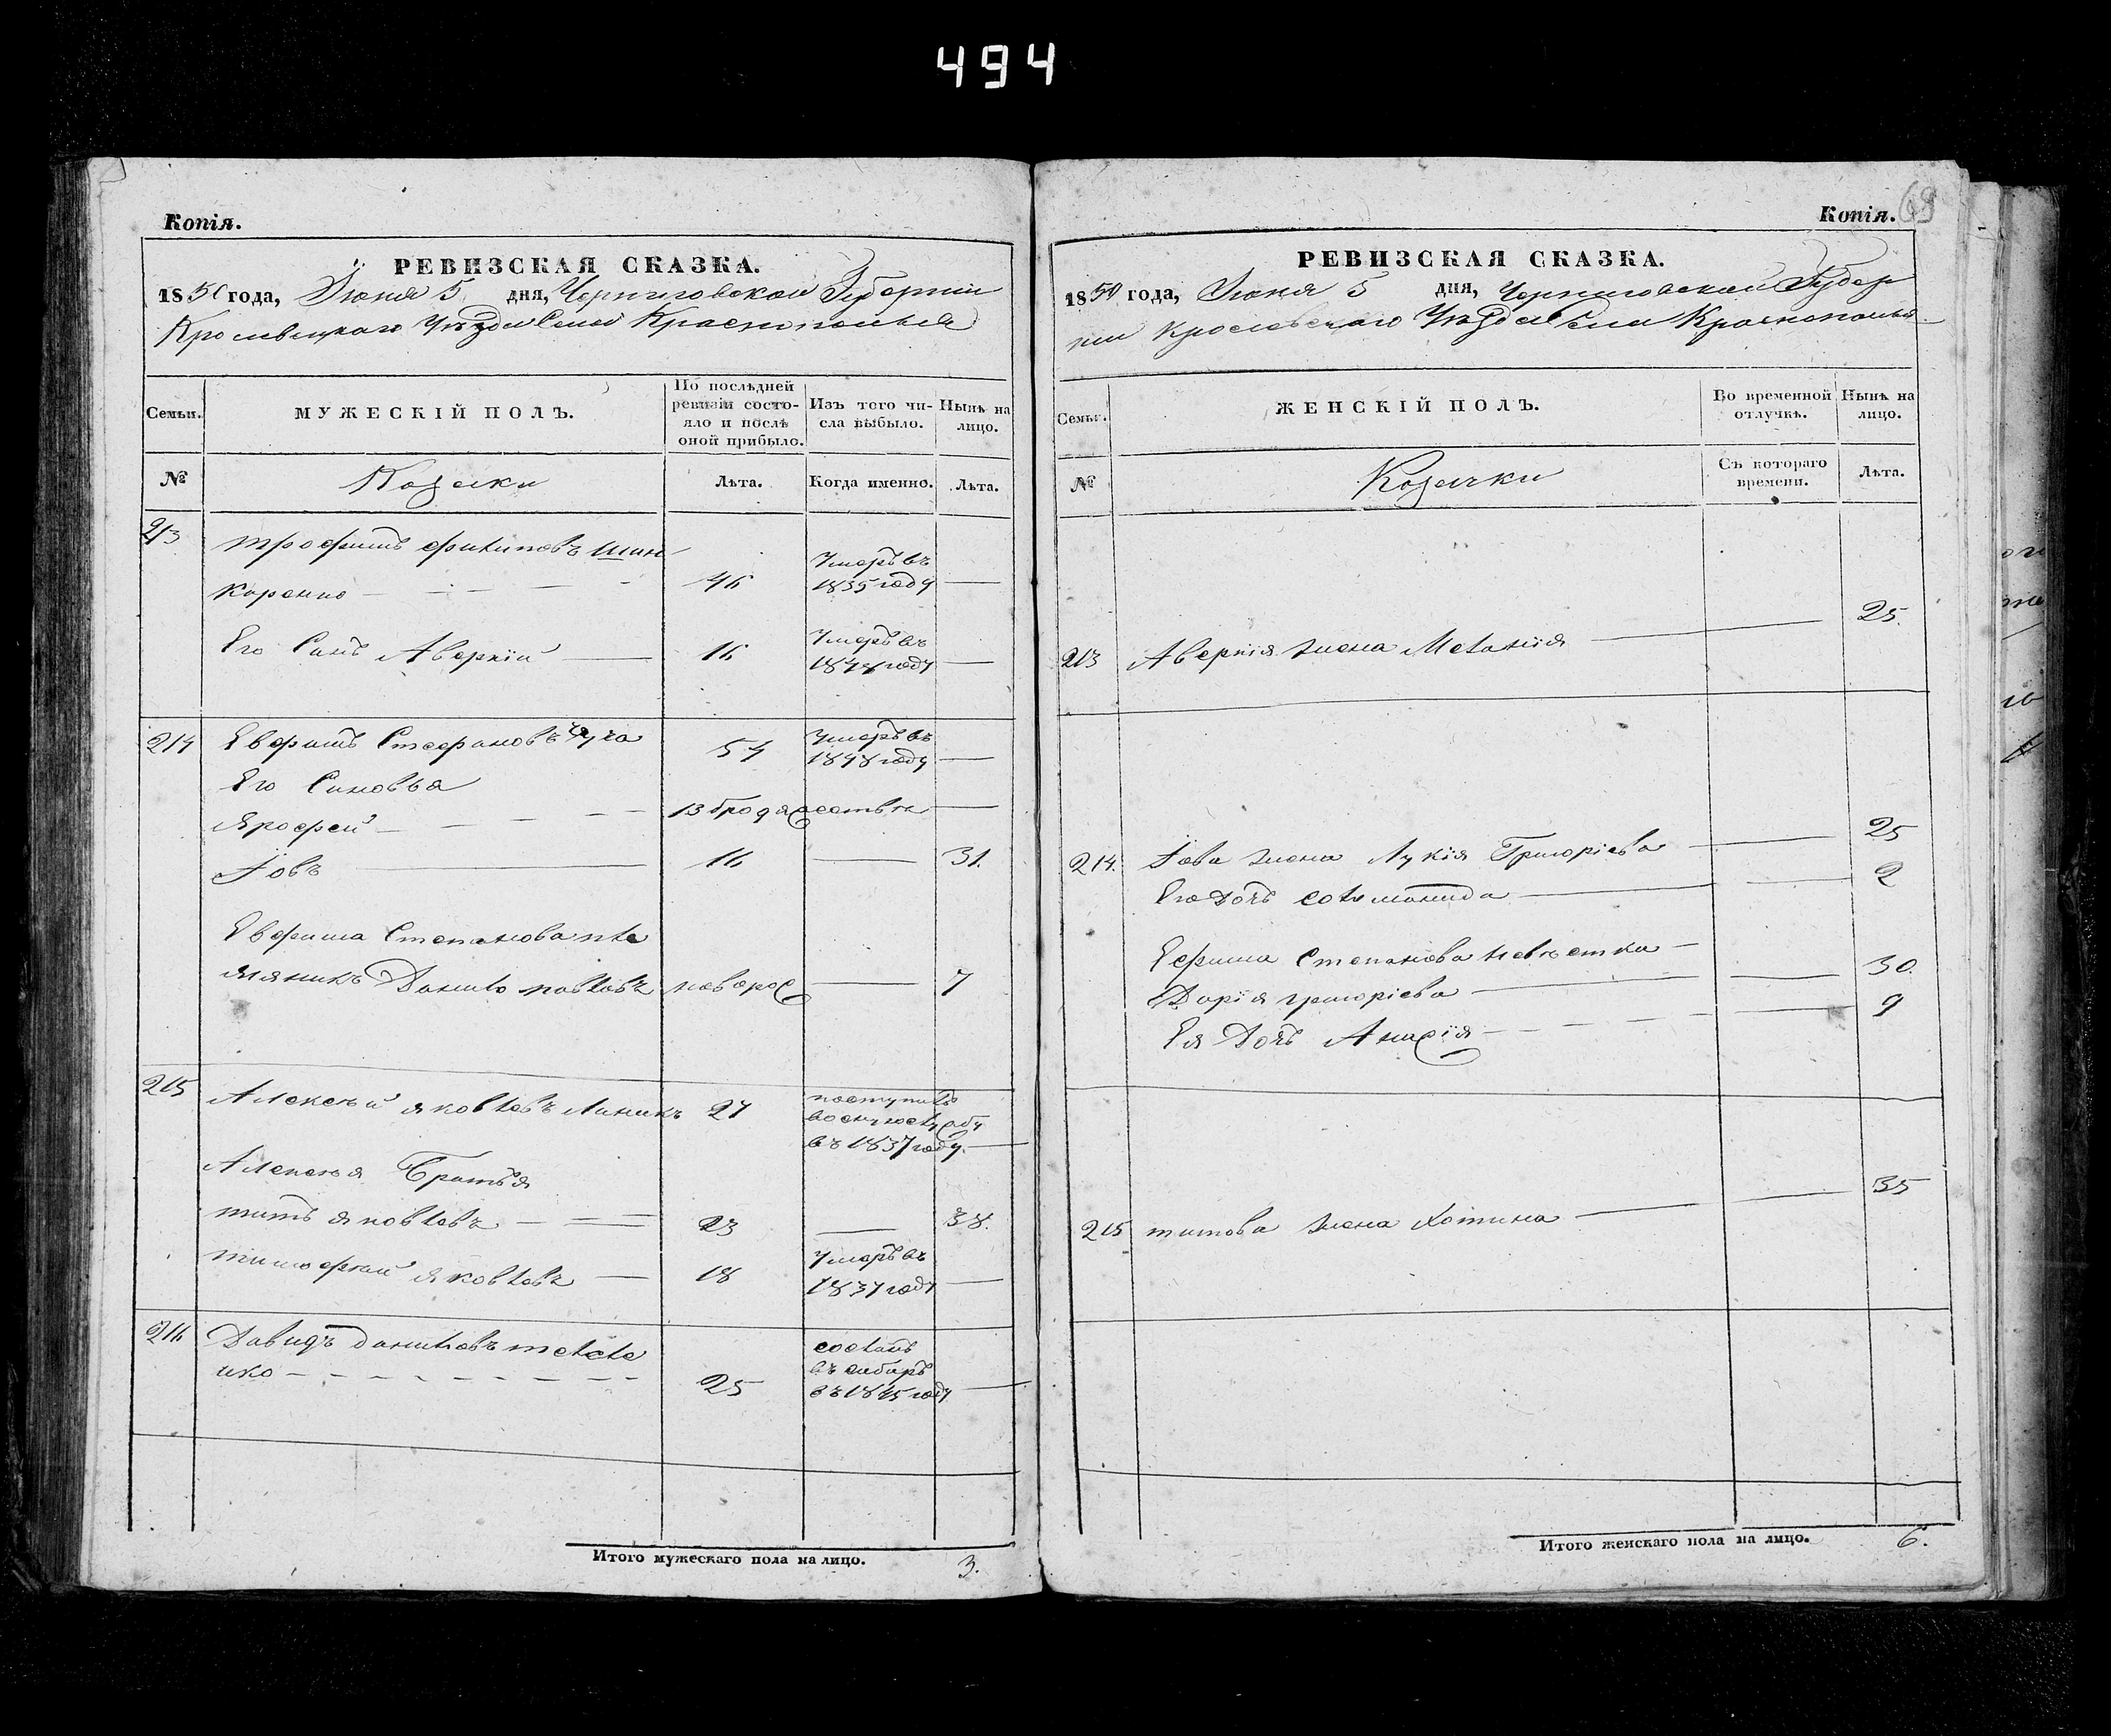 494
Копія.
РЕВИЗСКАЯ СКАЗКА.
1850 года, Іюня 5 дня, Черниговской Губерніи
Кролевецкаго Уѣзда Села Краснополья
Семьи.
МУЖЕСКІЙ ПОЛЪ.
По послѣдней ревизіи состо-
яло и послѣ оной прибыло.
Изъ того чи-
сла выбыло.
Нынѣ на
лицо.
№
Козаки
Лѣта.
Когда именно.
Лѣта.
213
трофимъ филиповъ Шин
каренко 46 Умеръ въ 1835 году
Его Синъ Аверкій 16 Умеръ въ 1848 году
214 Евфимъ Стефановъ 54 Умеръ въ 1848 году
Его Синовья
Ярофей 13
Іовъ 16 31.
Евфима Степанова пле
мяникъ Данило павловъ новорос 7
215 Алексѣй яковлевъ 27 поступилъ
въ 1837 году
Алексѣя Братья
титъ яковлевъ 23 38.
тимофѣй яковлевъ 18 Умеръ въ 1837 году
216 Давидъ даниловъ
25 сосланъ
въ сибирь
въ 1845 году
Итого мужескаго пола на лицо. 3.
69
Копія.
РЕВИЗСКАЯ СКАЗКА.
1850 года, Іюня 5 дня, Черниговской Губер
ніи Уѣзда Села Краснополья
Семьи.
ЖЕНСКІЙ ПОЛЪ.
Во временной
отлучкѣ.
Нынѣ на
лицо.
№
Козачки
Съ котораго
времени.
Лѣта.
213 Аверкія жена Меланія 25.
214. Іова жена Лукія Григоріева 25
Его Дочъ 2
Ефима Степанова невѣстка
Дарія григоріева 30.
Ея Дочъ Анисія 9
215 титова жена 35
Итого женскаго пола на лицо. 6.